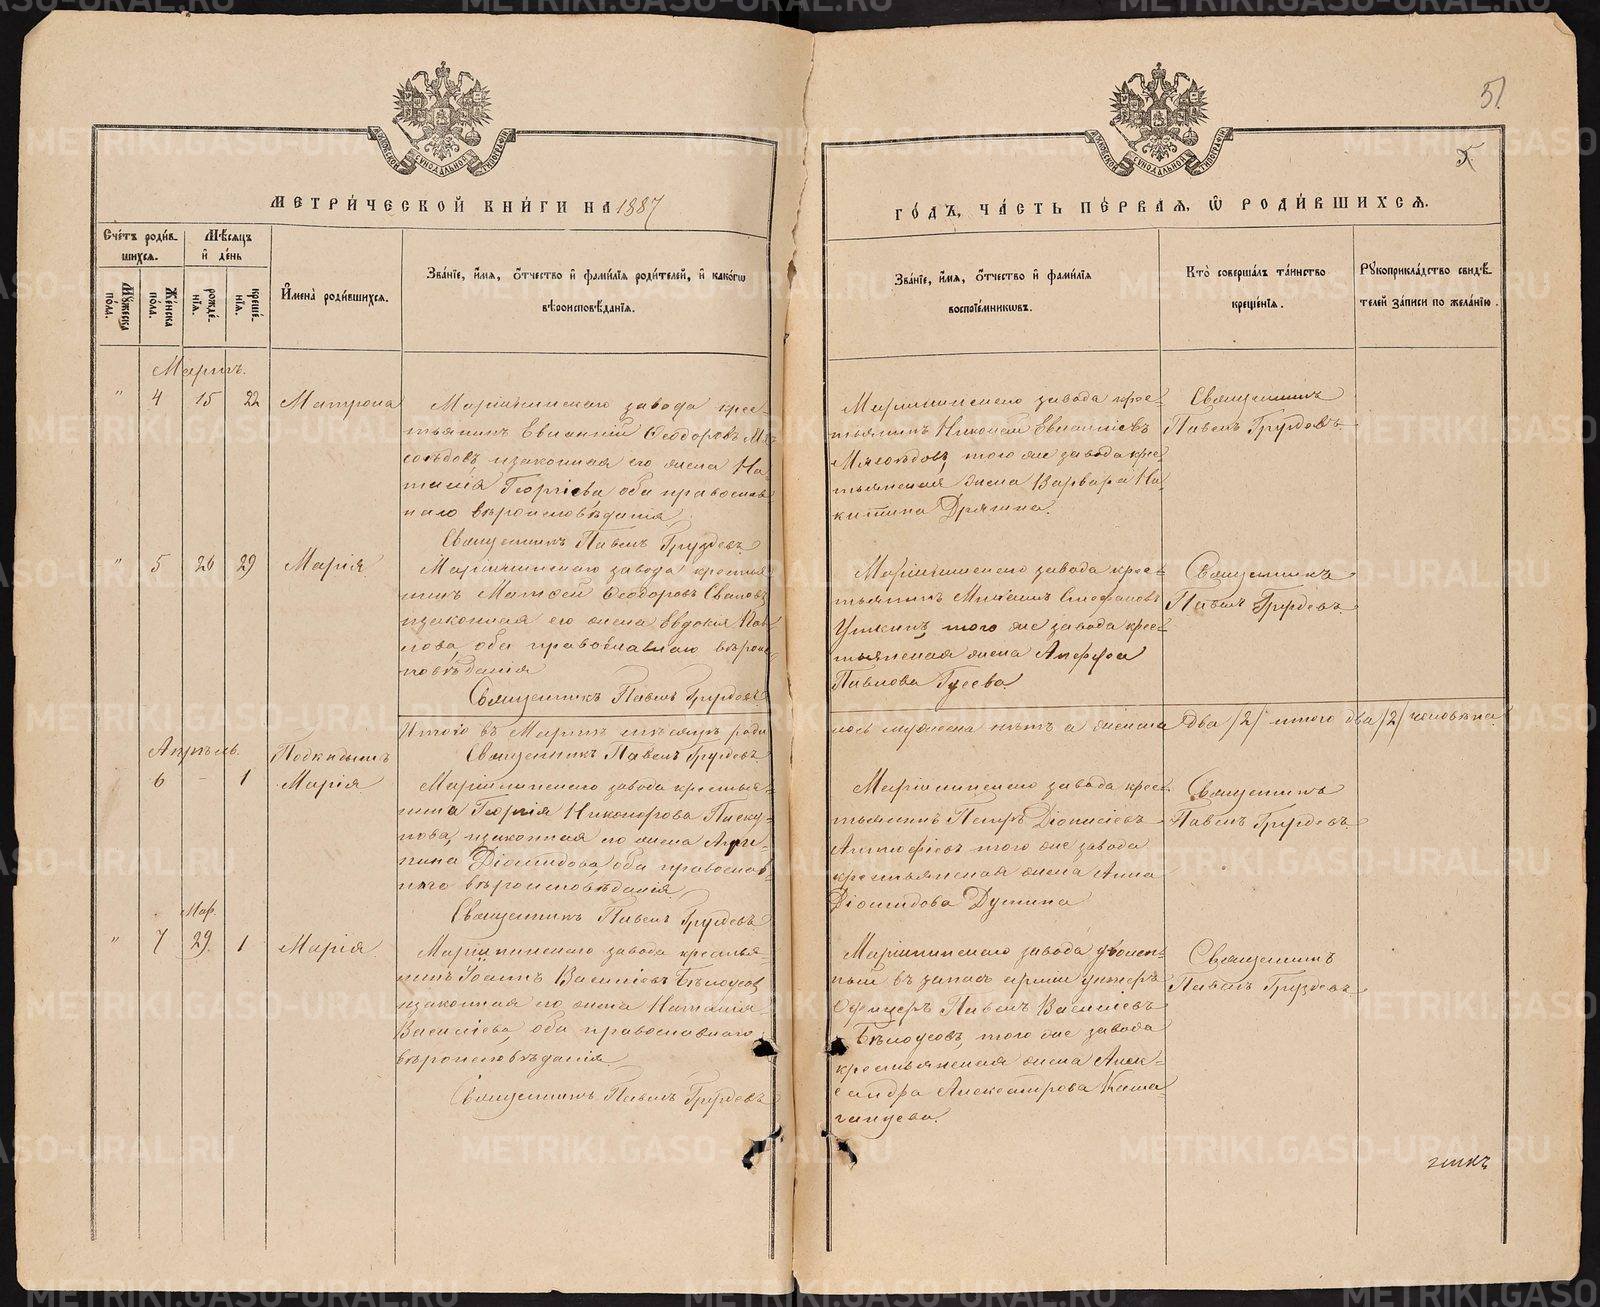 51
5.
МЕТРИ́ЧЕСКОЙ КНИ́ГИ НА 1887
ГО́ДЪ, ЧА́СТЬ ПЕ́РВАЯ, Ѡ РОДИ́ВШИХСЯ.
Сче́тъ роди́в-
шихся.
Мѣ́сяцъ
и де́нь
Мꙋ́жеска
по́ла.
Же́нска
по́ла.
рожде́-
нїя.
креще́-
нїя.
И҆мена̀ роди́вшихся.
Зва́нїе, и҆́мя, о҆́тчество и҆ фами́лїя роди́телей, и҆ како́гѡ
вѣроисповѣ́данїя.
Зва́нїе, и҆́мя, о҆́тчество и҆ фами́лїя
воспрїе́мникѡвъ.
Кто̀ соверша́лъ та́инство
креще́нїя.
Рꙋкоприкла́дство свидѣ́-
телей за́писи по жела́нїю.
Мартъ.
" 4 15 22 Матрона
Маріинскаго завода крес-
тьянинъ Евлампій Ѳеодоровъ Мя-
соѣдовъ, и законная его жена На-
талія Георгіева, оба православ-
наго вѣроисповѣданія.
Священникъ Павелъ Груздевъ
Маріинскаго завода крес-
тьянинъ Николай Евлампіевъ
Мясоѣдовъ, того же завода крес-
тьянская жена Варвара Ни-
китина Дрягина.
Священникъ
Павелъ Груздевъ.
" 5 26 29 Марія
Маріинскаго завода крестья-
нинъ Матѳей Ѳеодоровъ
и законная его жена Евдокія
оба православнаго вѣроис-
повѣданія
Священникъ Павелъ Груздевъ
Маріинскаго завода крес-
тьянинъ Стефановъ
Уткинъ, того же завода крес-
тьянская жена
Павлова Гусева.
Священникъ
Павелъ Груздевъ
Итого въ Мартѣ мѣсяцѣ роди-
лось мужеска нѣтъ а женска два /2/ итого два /2/ человѣка.
Священникъ Павелъ Груздевъ
Апрѣль.
Подкидышъ
6 - 1 Марія
Маріинскаго завода крестья-
нина Георгія Никанорова Писку-
нова, и законная его жена Агри-
пина Діомидова, оба православ-
наго вѣроисповѣданія.
Священникъ Павелъ Груздевъ
Маріинскаго завода крес-
тьянинъ Петръ Діонисіевъ
того же завода
крестьянская жена Анна
Діомидова
Священникъ
Павелъ Груздевъ.
Мар.
" 7 29 1 Марія
Маріинскаго завода крестья-
нинъ Іоаннъ Василіевъ Бѣлоусов
и законная его жена Наталія
Василіева, оба православнаго
вѣроисповѣданія.
Священникъ Павелъ Груздевъ
Маріинскаго завода уволен-
ный въ запасъ арміи унтеръ
Офицеръ Павелъ Василіевъ
Бѣлоусовъ, того же завода
крестьянская жена Алек-
сандра Александрова
Священникъ
Павелъ Груздевъ
METRIKI.GASO-URAL.RU